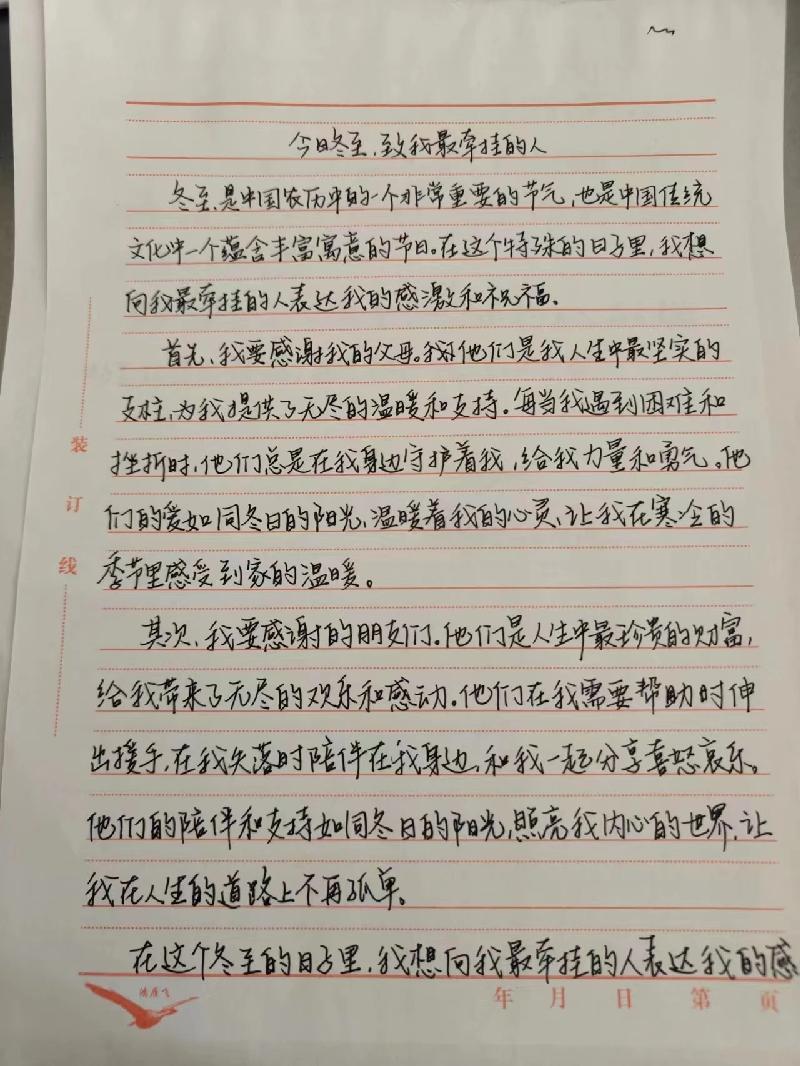 今日冬至，致我最牵挂的人
冬至，是中国农历中的一个非常重要的节气，也是中国传统
文化中一个蕴含丰富寓意的节日。在这个特殊的日子里，我想
向我最牵挂的人表达我的感激和祝福。
首先，我要感谢我的父母。我他们是我人生中最坚实的
支柱，为我提供了无尽的温暖和支持。每当我遇到困难和
挫折时，他们总是在我身边守护着我，给我力量和勇气。他
们的爱如同冬日的阳光，温暖着我的心灵，让我在寒冷的
季节里感受到家的温暖。
其次，我要感谢的朋友们。他们是人生中最珍贵的财富，
给我带来了无尽的欢乐和感动。他们在我需要帮助时伸
出援手，在我失落时陪伴在我身边，和我一起分享喜怒哀乐。
他们的陪伴和支持如同冬日的阳光，照亮我内心的世界，让
我在人生的道路上不再孤单。
在这个冬至的日子里，我想向我最牵挂的人表达我的感
装
订
线
年 月 日 第 页